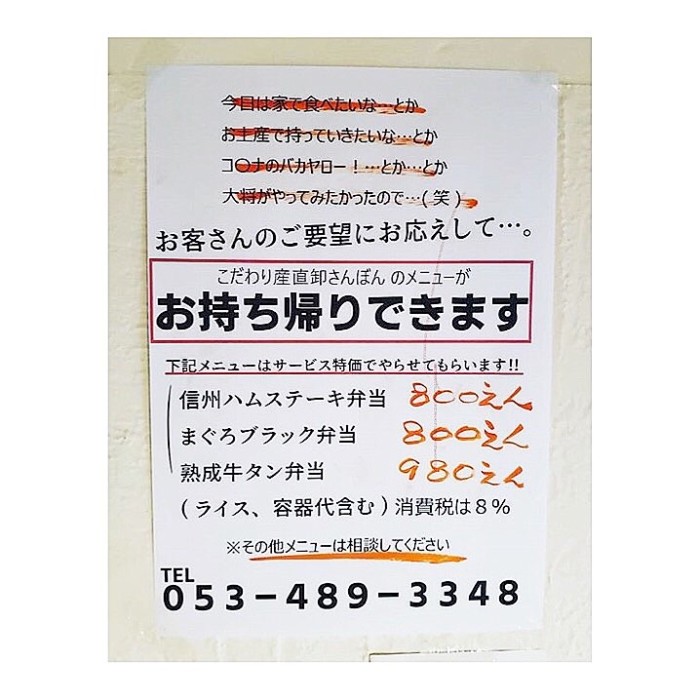 今日は家で食べたいな…とか
お土産で持っていきたいな…とか
コ〇ナのバカヤロー！…とか…とか
大将がやってみたかったので…(笑)
お客さんのご要望にお応えして…。
こだわり産直卸さんぼん のメニューが
お持ち帰りできます
下記メニューはサービス特価でやらせてもらいます!!
信州ハムステーキ弁当 800えん
まぐろブラック弁当 800えん
熟成牛タン弁当 980えん
(ライス、容器代含む)消費税は8%
※その他メニューは相談してください
TEL
053-489-3348